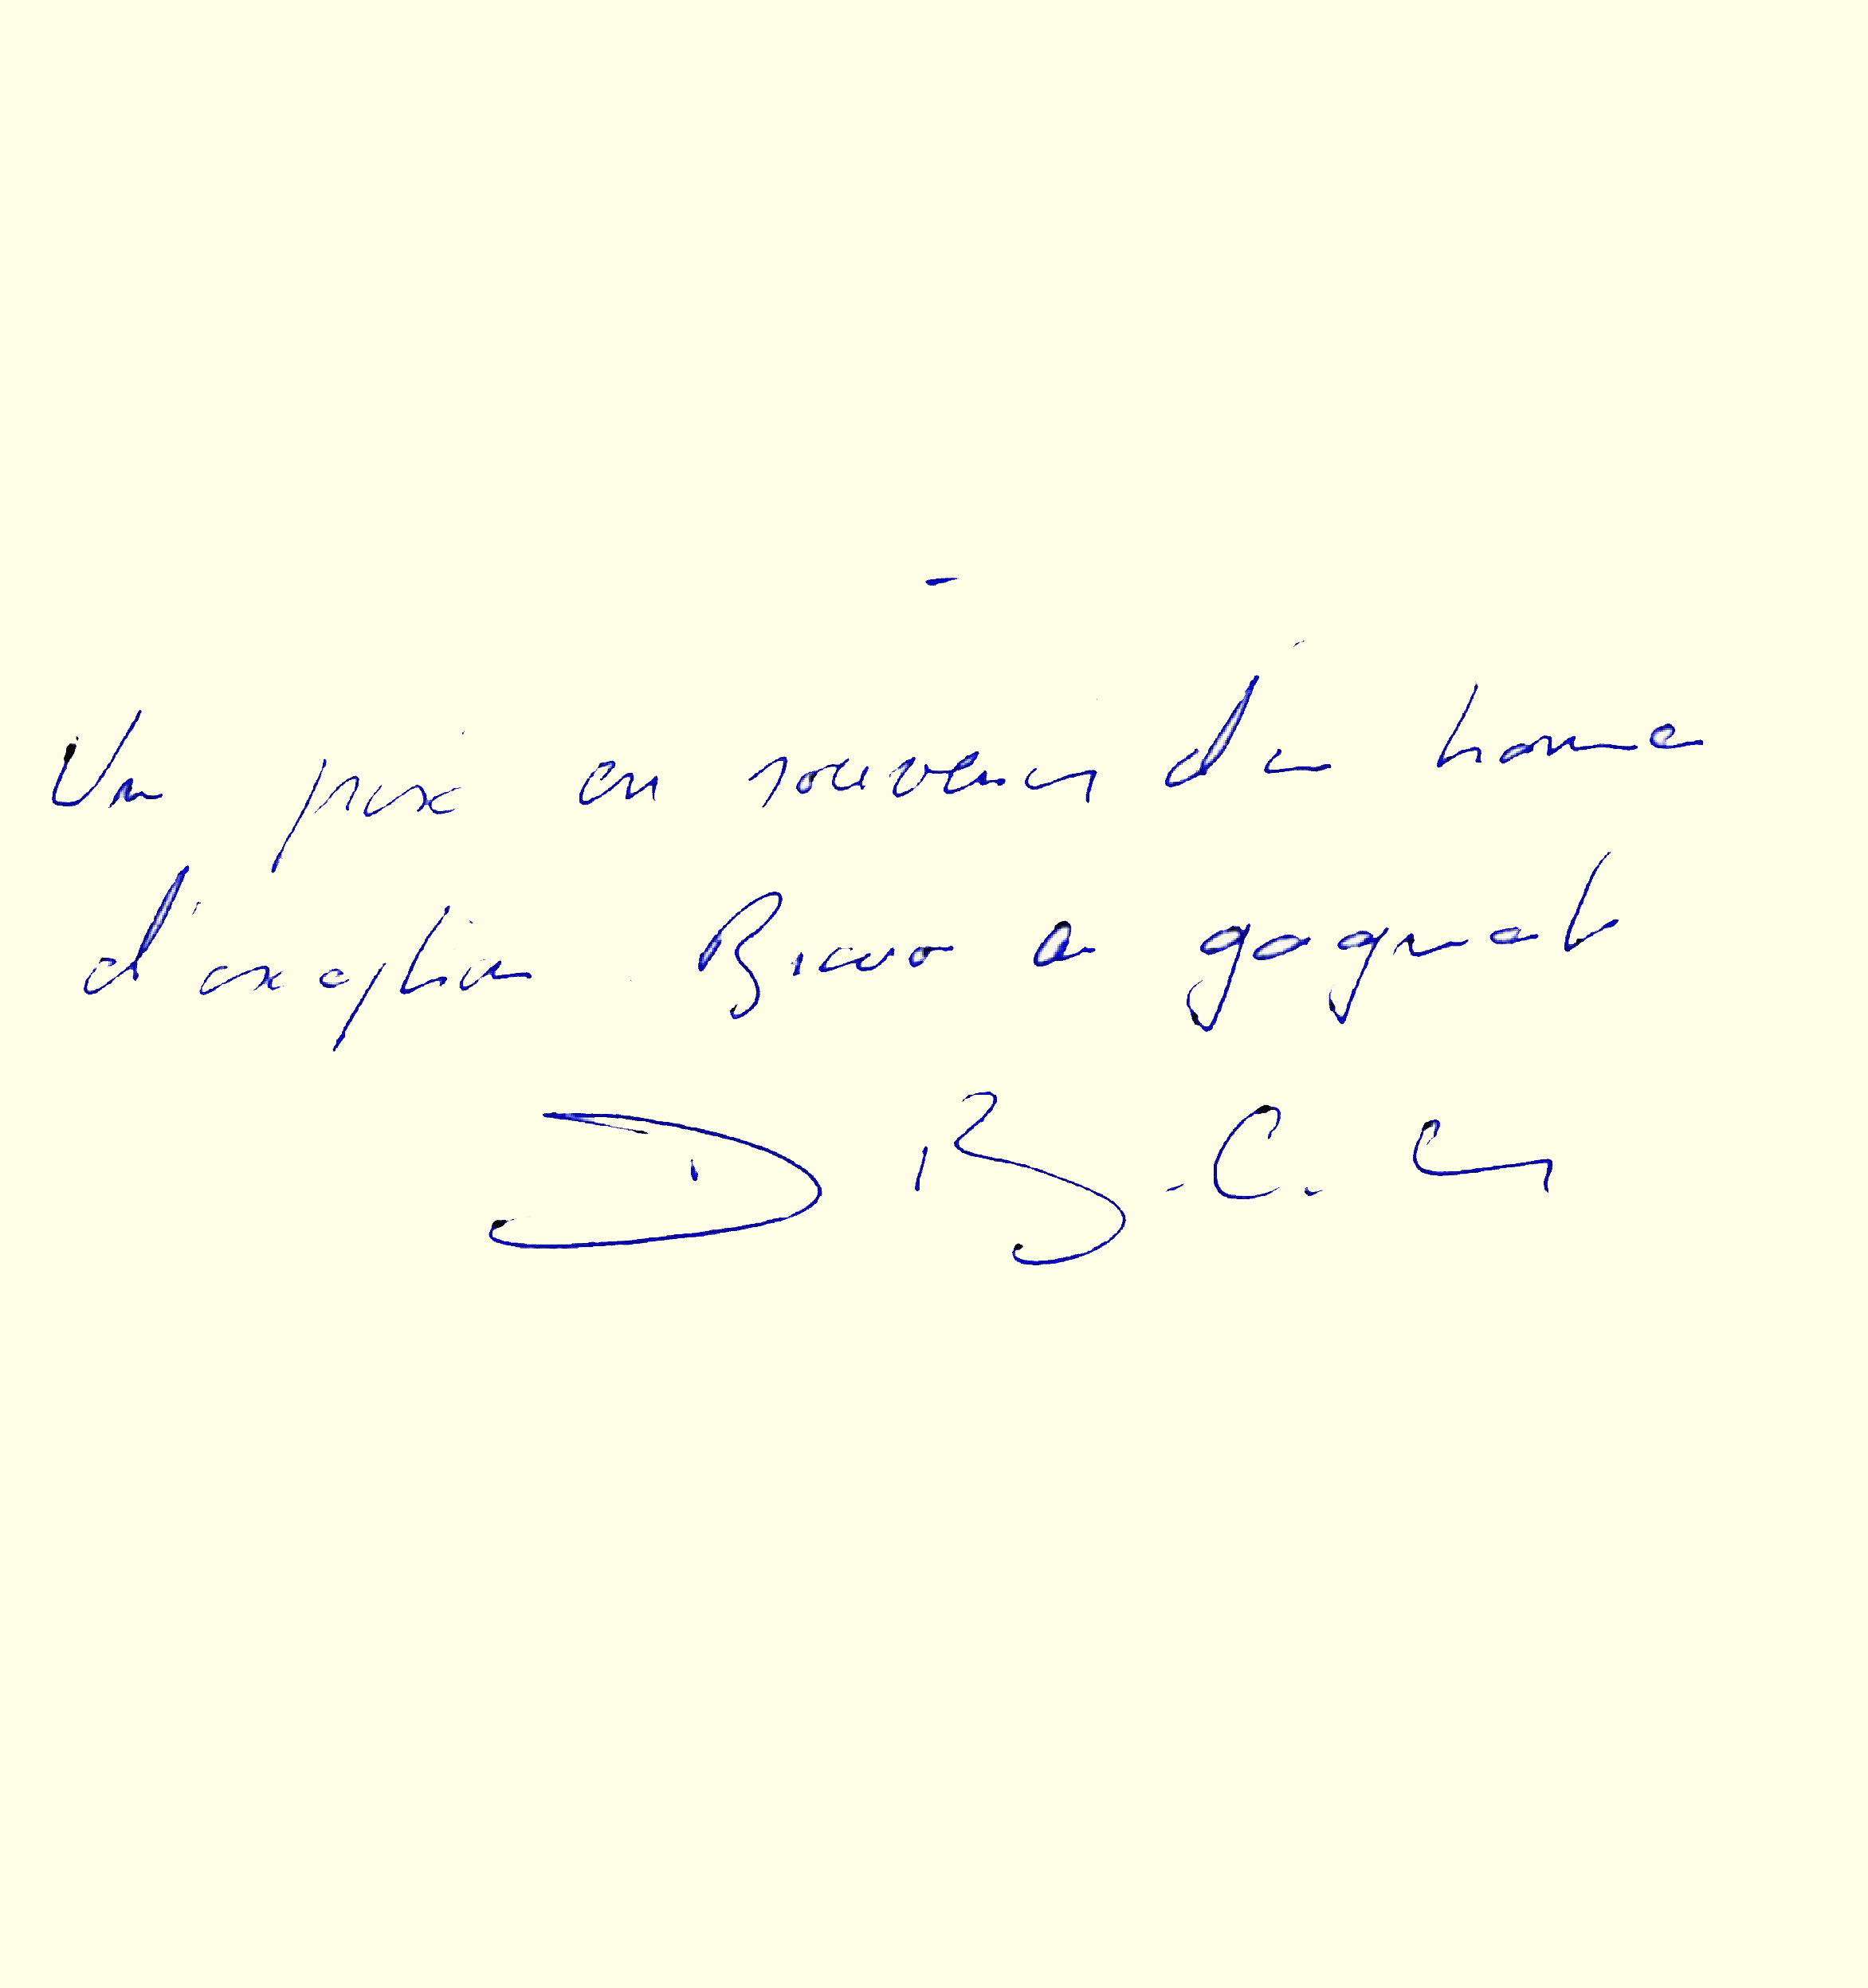 Un prix en souvenir d'un homme
d'exception. Bravo au gagnant
D B.C.